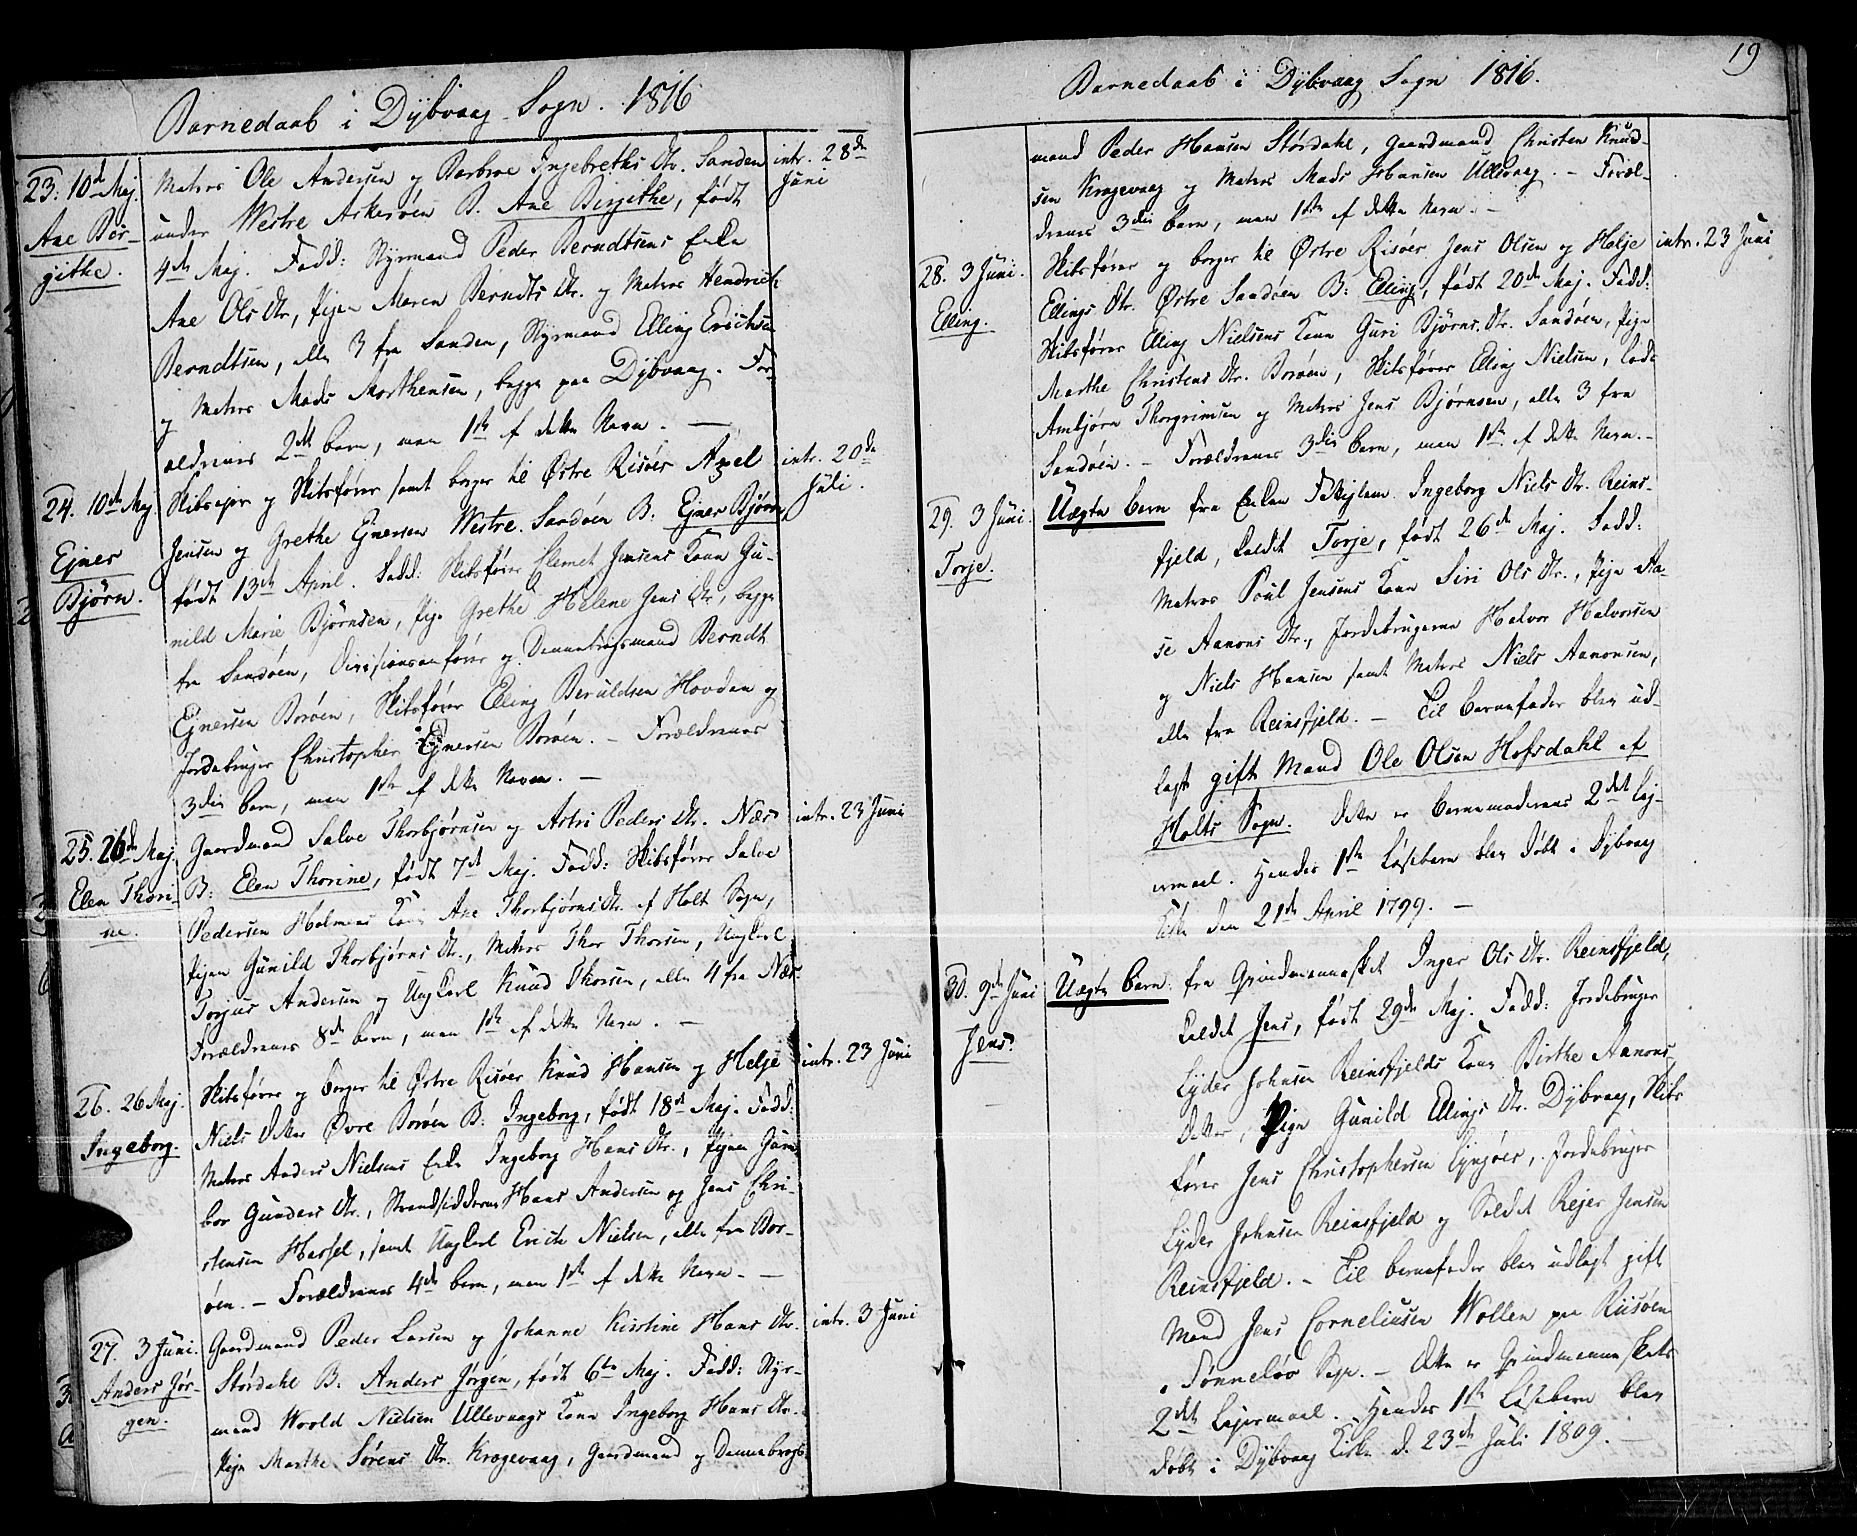 Barnedaab i Dÿbvaag Sogn. 1816
23. 10de Maj.
Ane Bir-
githe.
Matros Ole Andersen og Barbroe Ingebreths Dtr. Sanden
under Westre Askerøen B. Ane Birgithe, født
4de Maj. Fadd: Styrmand Peder Berndtsens Enke
Ane Ols Dtr, Pigen Maren Berndts Dtr. og Matros Hendrich
Berndtsen, alle 3 fra Sanden, Styrmand Elling Erichsen
og Matros Mads Morthensen, begge paa Dÿbvaag. For-
ældrenes 2det barn, men 1ste af dette Navn. —
intr. 28de
Juni
24. 10de Maj
Ejner
Bjørn.
Skibsejer og Skibsfører samt borger til Østre Risøer Axel
Jensen og Grethe Ejnersen Westre Sandøen B: Ejner Bjørn,
født 13de April. Fadd: Skibsfører Clemet Jensens Kone Gu-
nild Marie Bjørnsen, Pige Grethe Helene Jens Dtr, begge
fra Sandøen, Divisionsanfører og Dannebrogsmand Berndt
Ejnersen Borøen, Skibsfører Elling Beruldsen Hovden og
Jordebruger Christopher Ejnersen Borøen. — Forældrenes
3die barn, men 1ste af dette Navn. —
intr. 20de
Juli.
25. 26de Maj
Elen Thori-
ne.
Gaardmand Salve Thorbjørnsen og Astri Peders Dtr. Næs
B: Elen Thorine, født 7de Maj. Fadd: Skibsfører Salve
Pedersen Holmens Kone Ane Thorbjørns Dtr. af Holt Sogn,
Pigen Gunild Thorbjørns Dtr., Matros Thor Thorsen, Ungkarl
Torjus Andersen og Ungkarl Knud Thorsen, alle 4 fra Næs
Forældrenes 8de barn, men 1ste af dette Navn. —
intr. 23 Juni
26. 26 Maj.
Ingeborg.
Skibsfører og borger til Østre Risøer Knud Hansen og Helje
Niels Datter Øvre Borøen B: Ingeborg, født 18de Maj. Fadd:
Matros Anders Nielsens Enke Ingeborg Hans Dtr., Pigen Gun-
bor Gunders Dtr., Strandsidderne Hans Andersen og Jens Chri-
stensen Hassel, samt Ungkarl Erich Nielsen, alle fra Bor-
øen. — Forældrenes 4de barn, men 1ste af dette Navn. —
intr. 23 Juni
27. 3 Juni.
Anders Jør-
gen.
Gaardmand Peder Larsen og Johanne Kirstine Hans Dtr.
Størdahl B. Anders Jørgen, født 6te Maj. Fadd: Styr-
mand World Nielsen Ullevaags Kone Ingeborg Hans Dtr.
Pige Marthe Sørens Dtr. Krogevaag, Gaardmand og Dannebrogs-
intr. 3 Juni
19
Barnedaab i Dÿbvaag Sogn 1816.
mand Peder Hansen Størdahl, Gaardmand Christen Knud-
sen Krogevaag og Matros Mads Hansen Ullevaag. — Foræl-
drenes 3die barn, men 1ste af dette Navn. —
28. 3 Juni.
Elling.
Skibsfører og borger til Østre Risøer Jens Olsen og Helje
Ellings Dtr. Østre Sandøen B: Elling, født 20de Maj. Fadd:
Skibsfører Elling Nielsens Kone Guri Bjørns Dtr. Sandøen, Pige
Marthe Christens Dtr. Borøen, Skibsfører Elling Nielsen, Lods
Ambjørn Thorgrimsen og Matros Jens Bjørnsen, alle 3 fra
Sandøen. — Forældrenes 3die barn, men 1ste af dette Navn. —
intr. 23 Juni
29. 3 Juni.
Torje.
Uægte barn fra Enken Ingeborg Niels Dtr. Reins-
fjeld, kaldet Torje, født 26de Maj. Fadd:
Matros Poul Jensens Kone Siri Ols Dtr., Pige Aa-
se Aanons Dtr., Jordebrugerne Halvor Halvorsen
og Niels Hansen samt Matros Niels Aanonsen,
alle fra Reinsfjeld. — Til barnefader blev ud-
lagt gift Mand Ole Olsen Hofsdahl af
Holts Sogn. Dette er barnemoderens 2det Lej-
ermaal. Hendes 1ste Løsebarn blev døbt i Dÿbvaag
Kirke den 21de April 1799. —
30. 9de Juni
Jens.
Uægte barn fra Qvindmennesket Inger Ols Dtr. Reinsfjeld,
kaldet Jens, født 29de Maj. Fadd: Jordebruger
Lÿder Johnsen Reinsfjelds Kone Birthe Aanons
Datter, Pige Gunild Ellings Dtr. Dÿbvaag, Skibs
fører Jens Christophersen Lÿngøer, Jordebruger
Lÿder Johnsen Reinsfjeld og Soldat Rejer Jensen
Reinsfjeld. — Til barnefader blev udlagt gift
Mand Jens Corneliusen Wollen paa Riisøen
i Tønneløv Sogn. — Dette er Qvindmenneskets
2det Lejermaal. Hendes 1ste Løsebarn blev
døbt i Dÿbvaag Kirke d. 23de Juli 1809. —